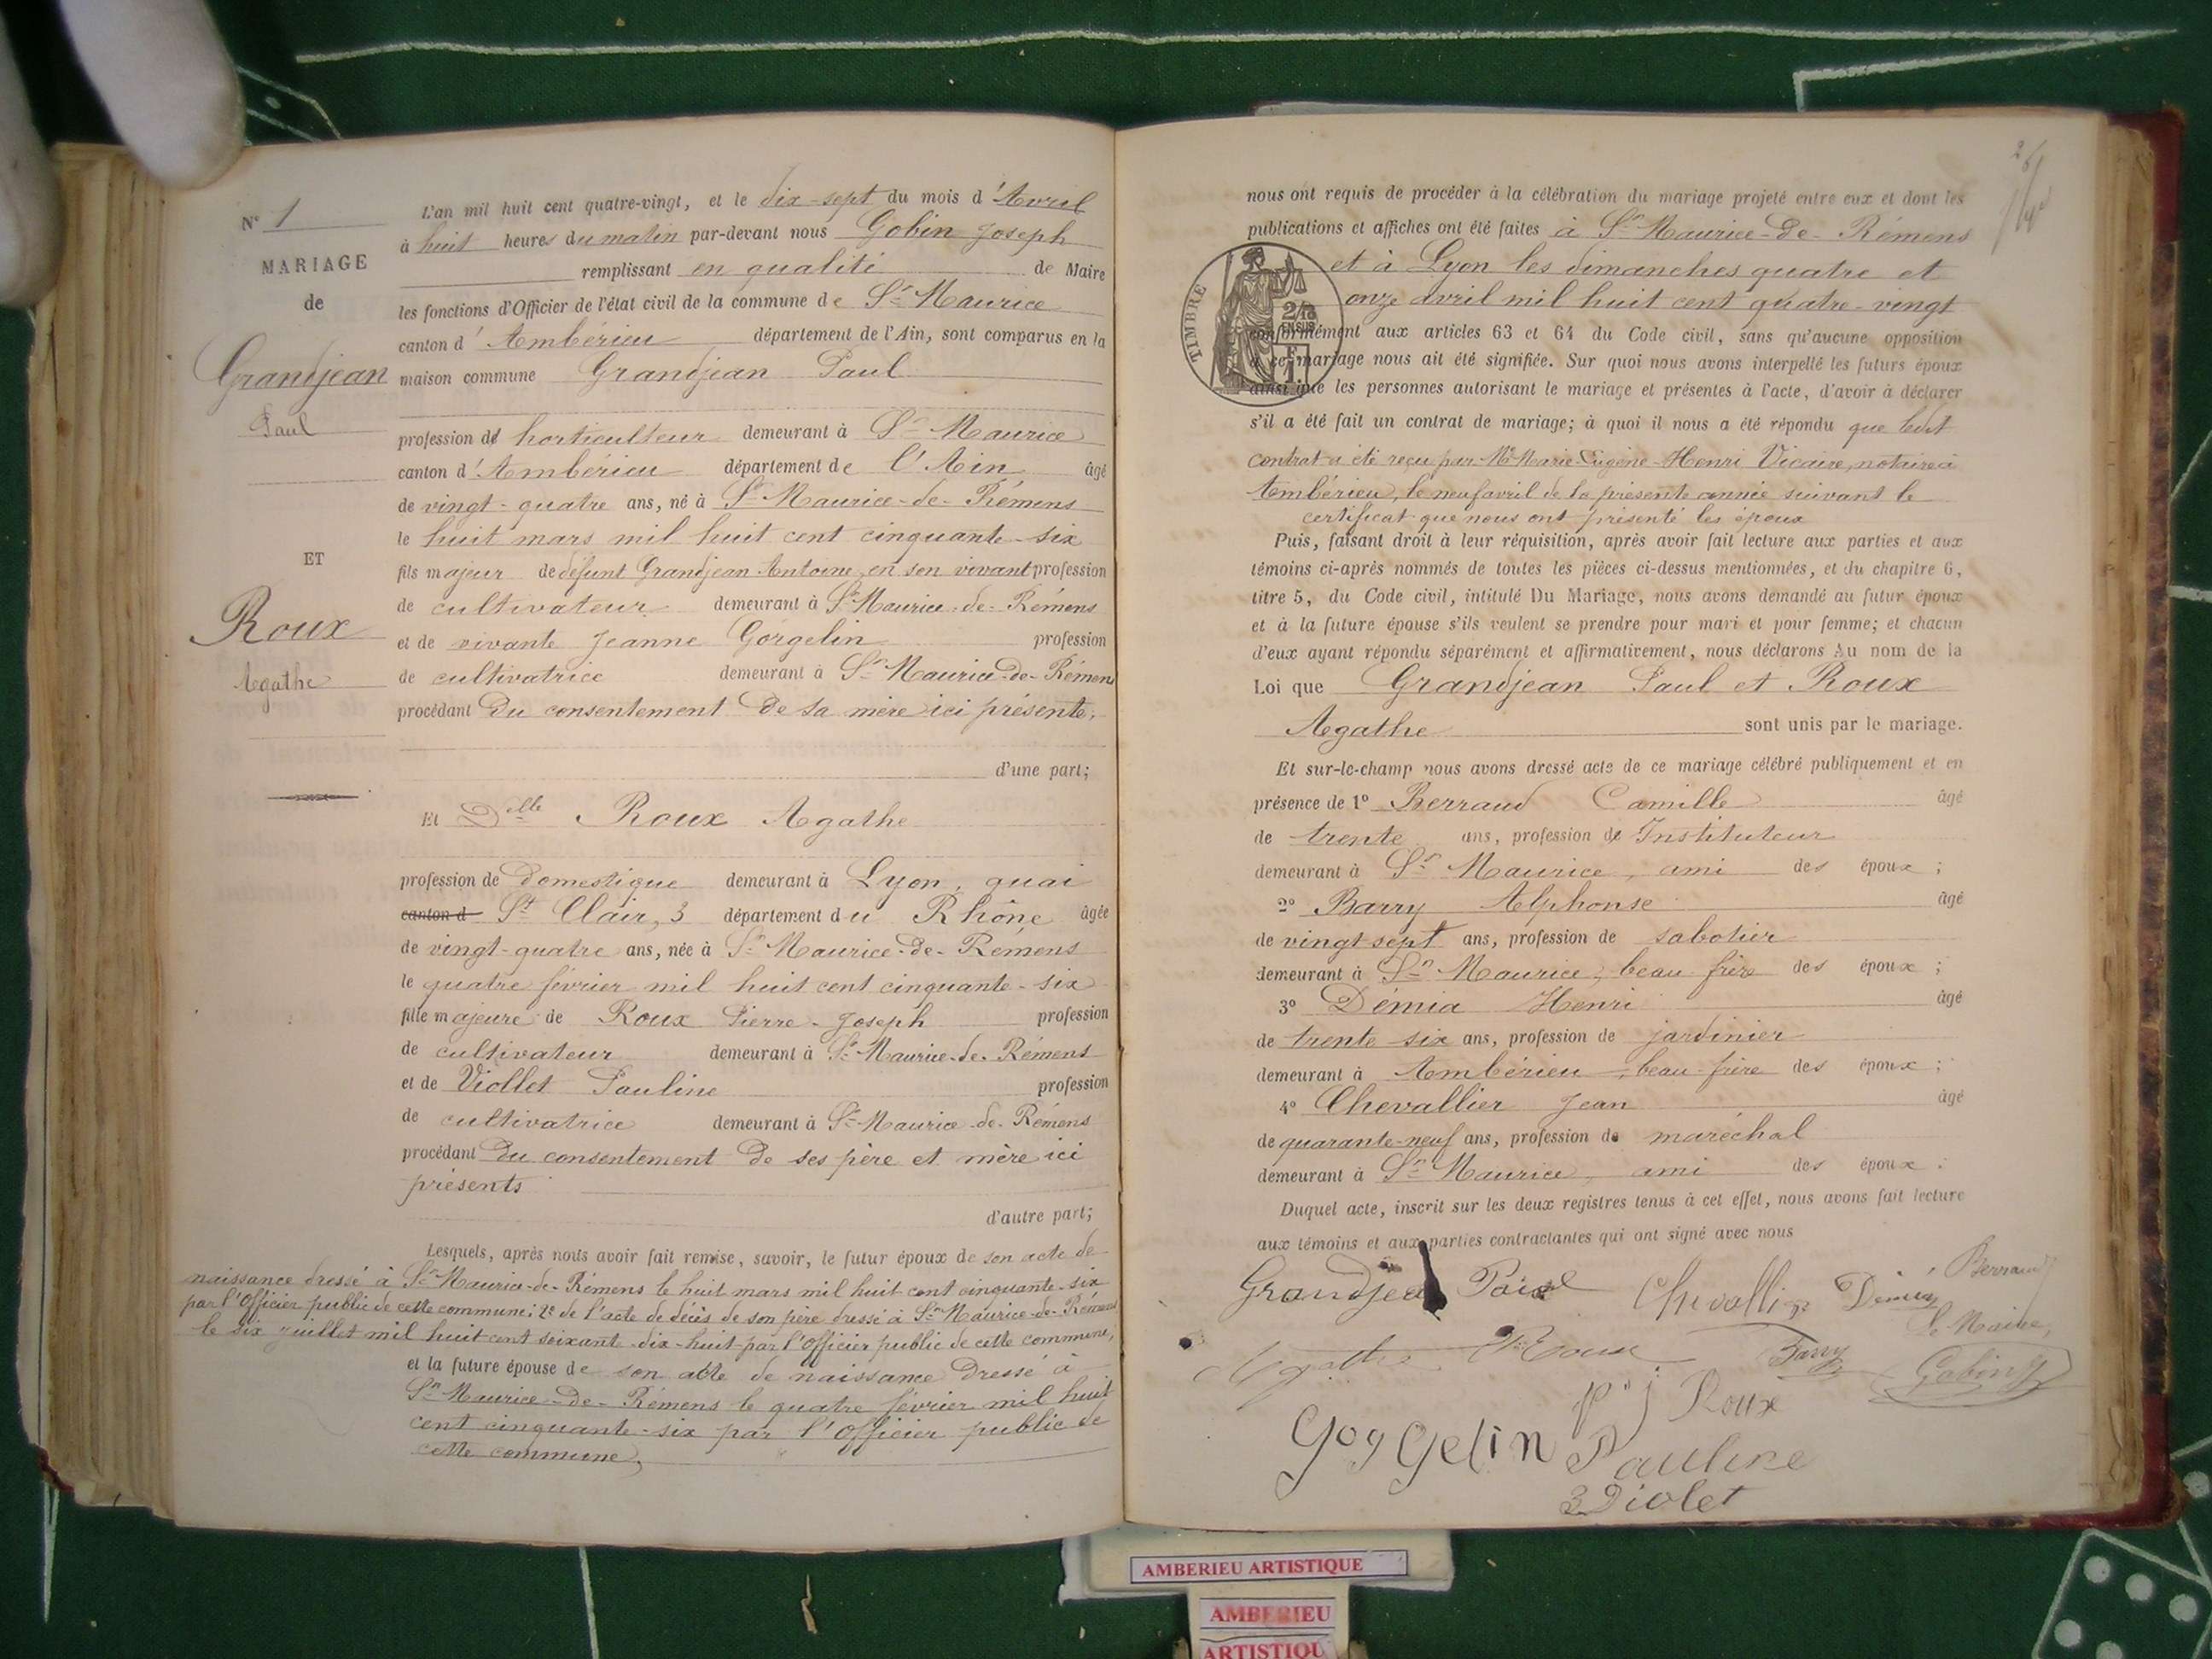 N° 1
MARIAGE
de
Grandjean
Paul
ET
Roux
Agathe
L'an mil huit cent quatre-vingt, et le dix-sept du mois d'Avril
à huit heures du matin par-devant nous Gobin Joseph
remplissant en qualité de Maire
les fonctions d'Officier de l'état civil de la commune de St Maurice
canton d'Ambérieu département de l'Ain, sont comparus en la
maison commune Grandjean Paul
profession d' horticulteur demeurant à St Maurice
canton d'Ambérieu département de l'Ain âgé
de vingt-quatre ans, né à St Maurice-de-Rémens
le huit mars mil huit cent cinquante-six
fils majeur de défunt Grandjean Antoine, en son vivant profession
de cultivateur demeurant à St Maurice-de-Rémens
et de vivante Jeanne Gorgelin profession
de cultivatrice demeurant à St Maurice-de-Rémens
procédant du consentement de sa mère ici présente,
d'une part;
Et Dlle Roux Agathe
profession de domestique demeurant à Lyon, quai
canton d St Clair, 3 département du Rhône âgée
de vingt-quatre ans, née à St Maurice-de-Rémens
le quatre février mil huit cent cinquante-six
fille majeure de Roux Pierre-Joseph profession
de cultivateur demeurant à St Maurice-de-Rémens
et de Viollet Pauline profession
de cultivatrice demeurant à St Maurice-de-Rémens
procédant du consentement de ses père et mère ici
présents
d'autre part;
Lesquels, après nous avoir fait remise, savoir, le futur époux de son acte de
naissance dressé à St Maurice-de-Rémens le huit mars mil huit cent cinquante-six
par l'Officier public de cette commune; 2° de l'acte de décès de son père dressé à St Maurice-de-Rémens
le six juillet mil huit cent soixante-dix-huit par l'Officier public de cette commune,
et la future épouse de son acte de naissance dressé à
St Maurice-de-Rémens le quatre février mil huit
cent cinquante-six par l'Officier public de
cette commune,
nous ont requis de procéder à la célébration du mariage projeté entre eux et dont les
publications et affiches ont été faites à St Maurice-de-Rémens
et à Lyon les dimanches quatre et
onze avril mil huit cent quatre-vingt
TIMBRE
2/10
EN SUS
conformément aux articles 63 et 64 du Code civil, sans qu'aucune opposition
à ce mariage nous ait été signifiée. Sur quoi nous avons interpellé les futurs époux
ainsi que les personnes autorisant le mariage et présentes à l'acte, d'avoir à déclarer
s'il a été fait un contrat de mariage; à quoi il nous a été répondu que ledit
contrat a été reçu par Me Marie-Eugène-Henri Vicaire, notaire à
Ambérieu, le neuf avril de la présente année suivant le
certificat que nous ont présenté les époux
Puis, faisant droit à leur réquisition, après avoir fait lecture aux parties et aux
témoins ci-après nommés de toutes les pièces ci-dessus mentionnées, et du chapitre 6,
titre 5, du Code civil, intitulé Du Mariage, nous avons demandé au futur époux
et à la future épouse s'ils veulent se prendre pour mari et pour femme; et chacun
d'eux ayant répondu séparément et affirmativement, nous déclarons Au nom de la
Loi que Grandjean Paul et Roux
Agathe sont unis par le mariage.
Et sur-le-champ nous avons dressé acte de ce mariage célébré publiquement et en
présence de 1° Berraud Camille âgé
de trente ans, profession d' Instituteur
demeurant à St Maurice, ami des époux;
2° Barry Alphonse âgé
de vingt-sept ans, profession de sabotier
demeurant à St Maurice, beau-frère des époux;
3° Démia Henri âgé
de trente-six ans, profession de jardinier
demeurant à Ambérieu, beau-frère des époux;
4° Chevallier Jean âgé
de quarante-neuf ans, profession de maréchal
demeurant à St Maurice, ami des époux.
Duquel acte, inscrit sur les deux registres tenus à cet effet, nous avons fait lecture
aux témoins et aux parties contractantes qui ont signé avec nous
Grandjean Paul Chevallier Démia Berraud
Le Maire,
Agathe Roux Barry Gobin
pr j Roux
Gorgelin Pauline
Violet
AMBERIEU ARTISTIQUE
AMBERIEU
ARTISTIQU